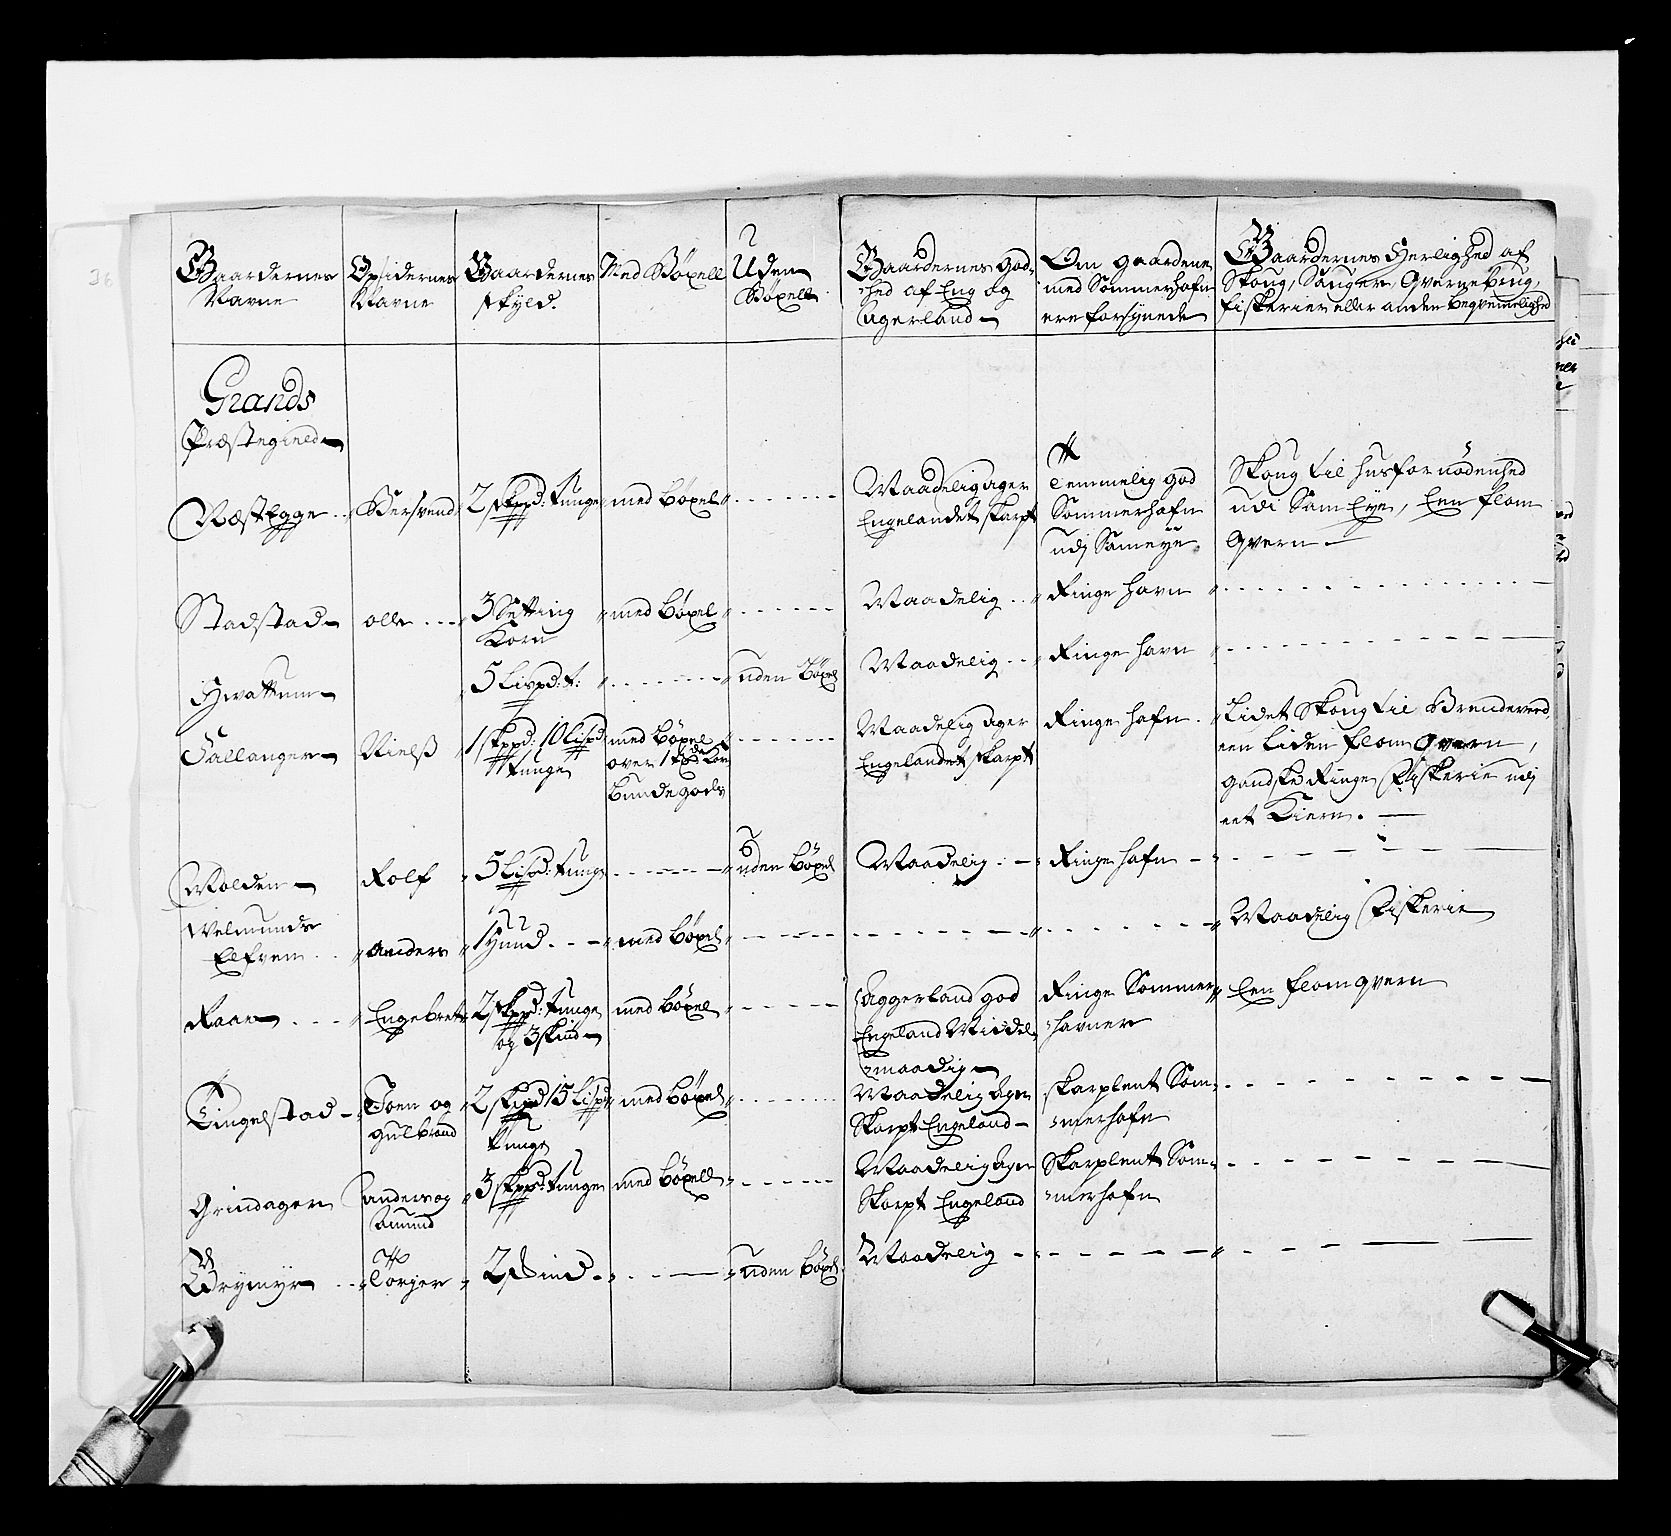 Gaardernes Navne | Opsidernes Navne | Gaardernes skyld. | Med Bøxell | Uden Bøxell | Gaardernes God-
hed af Eng og
Agerland | Om gaardene
med Sommerhafn
ere forsÿnede | Gaardernes Herlighed af
Skoug, Sauger, Qvernebrug,
fiskerier eller anden beqvemmelighed
Grands
Præstegield
Næstegge | Kersvend | 2 skpd: tunge | med bøxel | Maadelig ager
Engelandet skarpt | Temmelig god
Sommerhafn
udj Sameÿe | Skoug til husfornødenhed
udi Sam Eye, Een flom
Qvern
Stadstad | olle | 3 Setting
Korn | med bøxel | Maadelig | Ringe havn
Hvattum | 5 Lispd: t: | uden bøxel | Maadelig | Ringe havn
Fallanger | Nielß | 1 skppd: 10 lispd
tunge | med bøxel
over
bundegods | Maadelig ager
Engelandet skarpt | Ringe hafn | Lidet Skoug til Brendeveed,
een liden flom Qvern,
gandske Ringe Fiskerie udj
eet Kiern.
Molden | Rolf | 5 lispd: tunge | uden bøxel | Maadelig | Ringe hafn
Velmunds
Elfven | Anders | 1 Hund | med bøxel | Maadelig Fiskerie
Raan | Engebret | 2 skppd: tunge
og 3 skind | med bøxel | Aggerland god
Engeland Middel
maadig | Ringe Sommer
havner | Een flomqvern
Tingelstad | Joen og
Gulbrand | 2 skpd 15 Lispd
tunge | med bøxel | Maadelig Ager
Skarpt Engeland | skarplent Som-
merhafn
Grindager | anders og
Amund | 3 skppd: tunge | med bøxell | Maadelig Ager
Skarpt Engeland | Skarplent Som-
merhafn
Brÿmÿr | Torger | 2 skind | uden bøxel | Maadelig